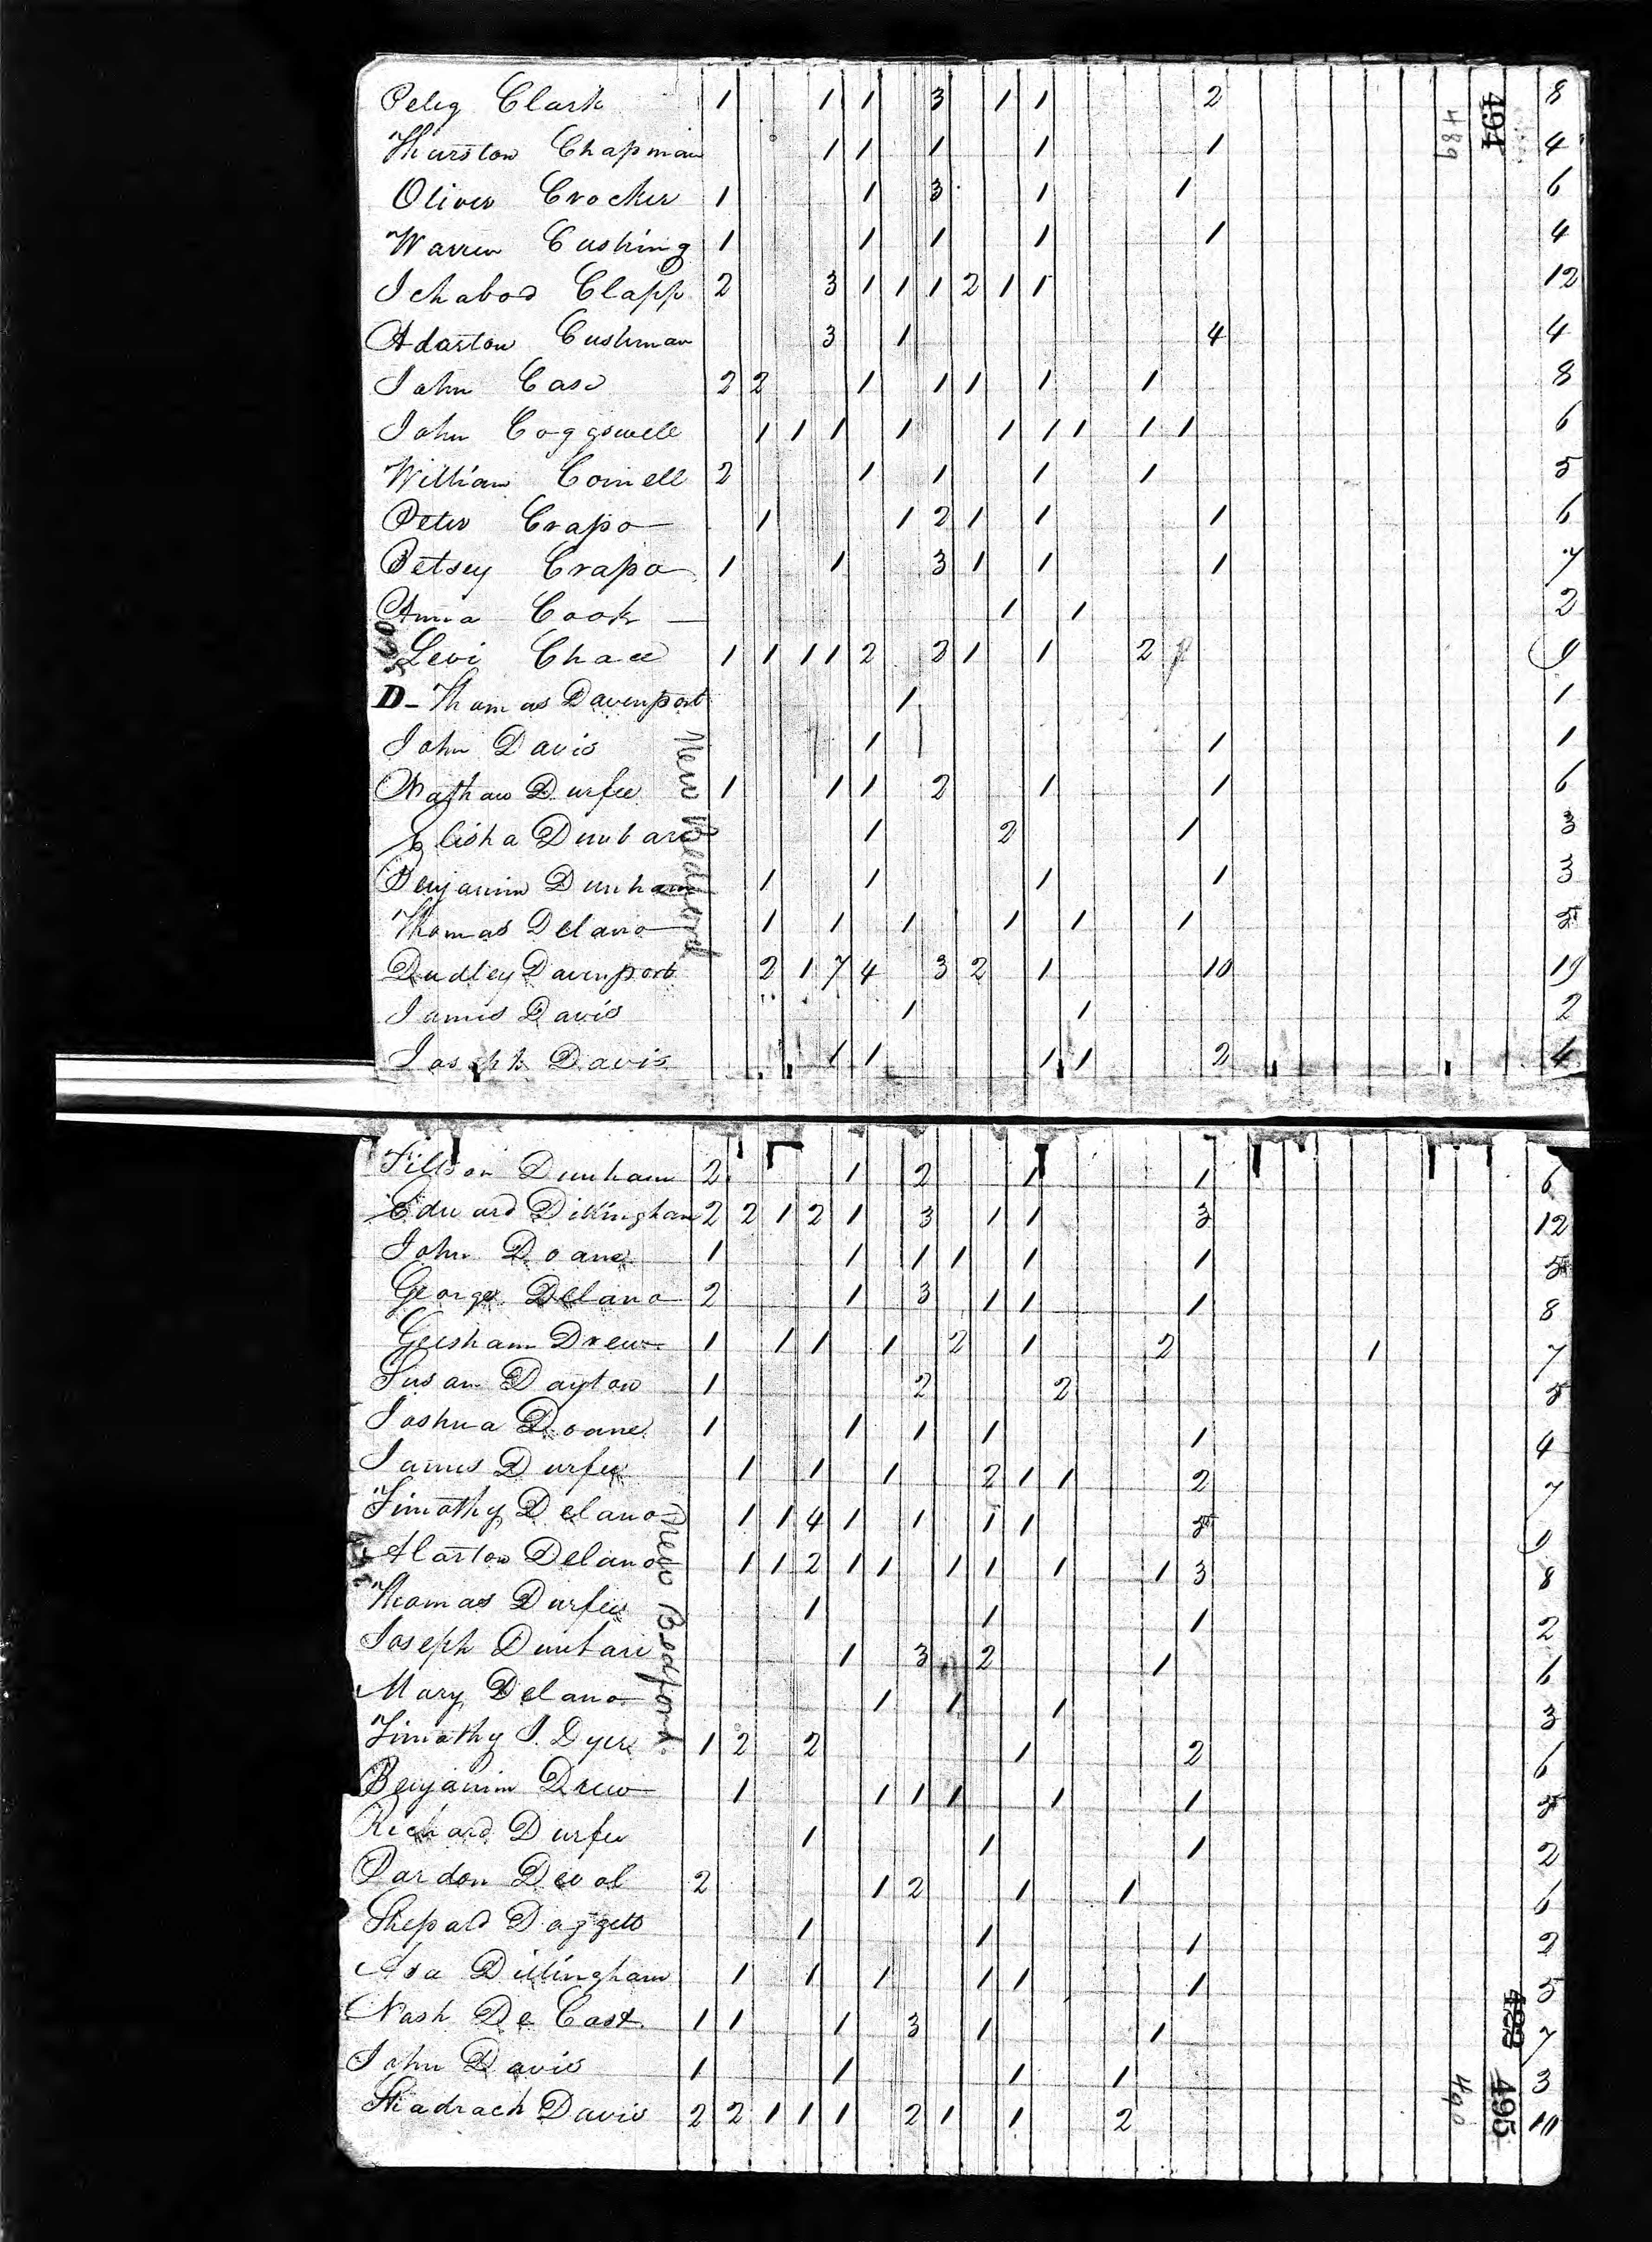 494
489
Peleg Clark 1 1 1 3 1 1 2 8
Thurston Chapman 1 1 1 1 1 4
Oliver Crocker 1 1 3 1 1 6
Warren Cushing 1 1 1 1 1 4
Ichabod Clapp 2 3 1 1 1 2 1 1 12
Adarton Cushman 3 1 4 4
John Case 2 2 1 1 1 1 1 8
John Coggswell 1 1 1 1 1 1 1 1 1 6
William Cornell 2 1 1 1 1 5
Peter Crapo 1 1 2 1 1 1 6
Betsey Crapo 1 1 3 1 1 1 7
Anna Cook 1 1 2
Levi Chace 1 1 1 1 2 2 1 1 2 9
D - Thomas Davenport 1 1
John Davis 1 1 1
Nathan Durfee 1 1 1 2 1 1 6
Elisha Dunbar 1 2 1 3
Benjamin Dunham 1 1 1 1 3
Thomas Delano 1 1 1 1 1 1 5
Dudley Davenport 2 1 7 4 3 2 1 10 19
James Davis 1 1 2
Joseph Davis 1 1 1 1 2 4
New Bedford
Tillson Dunham 2 1 2 1 1 6
Edward Dillingham 2 2 1 2 1 3 1 1 3 12
John Doane 1 1 1 1 1 1 5
George Delano 2 1 3 1 1 1 8
Gersham Drew 1 1 1 1 2 1 2 1 7
Susan Dayton 1 2 2 5
Joshua Doane 1 1 1 1 1 4
James Durfee 1 1 1 2 1 1 2 7
Timothy Delano 1 1 4 1 1 1 1 5
Alarton Delano 1 1 2 1 1 1 1 1 1 3 8
Thomas Durfee 1 1 1 2
Joseph Dunbar 1 3 2 1 6
Mary Delano 1 1 1 3
Timothy I. Dyer 1 2 2 1 2 6
Benjamin Drew 1 1 1 1 1 1 5
Richard Durfee 1 1 1 2
Pardon Deval 2 1 2 1 1 6
Shepard Daggett 1 1 1 2
Asa Dillingham 1 1 1 1 1 1 5
Nash De Cost 1 1 1 3 1 1 7
John Davis 1 1 1 1 3
Shadrach Davis 2 2 1 1 1 2 1 1 2 10
New Bedford
490
495